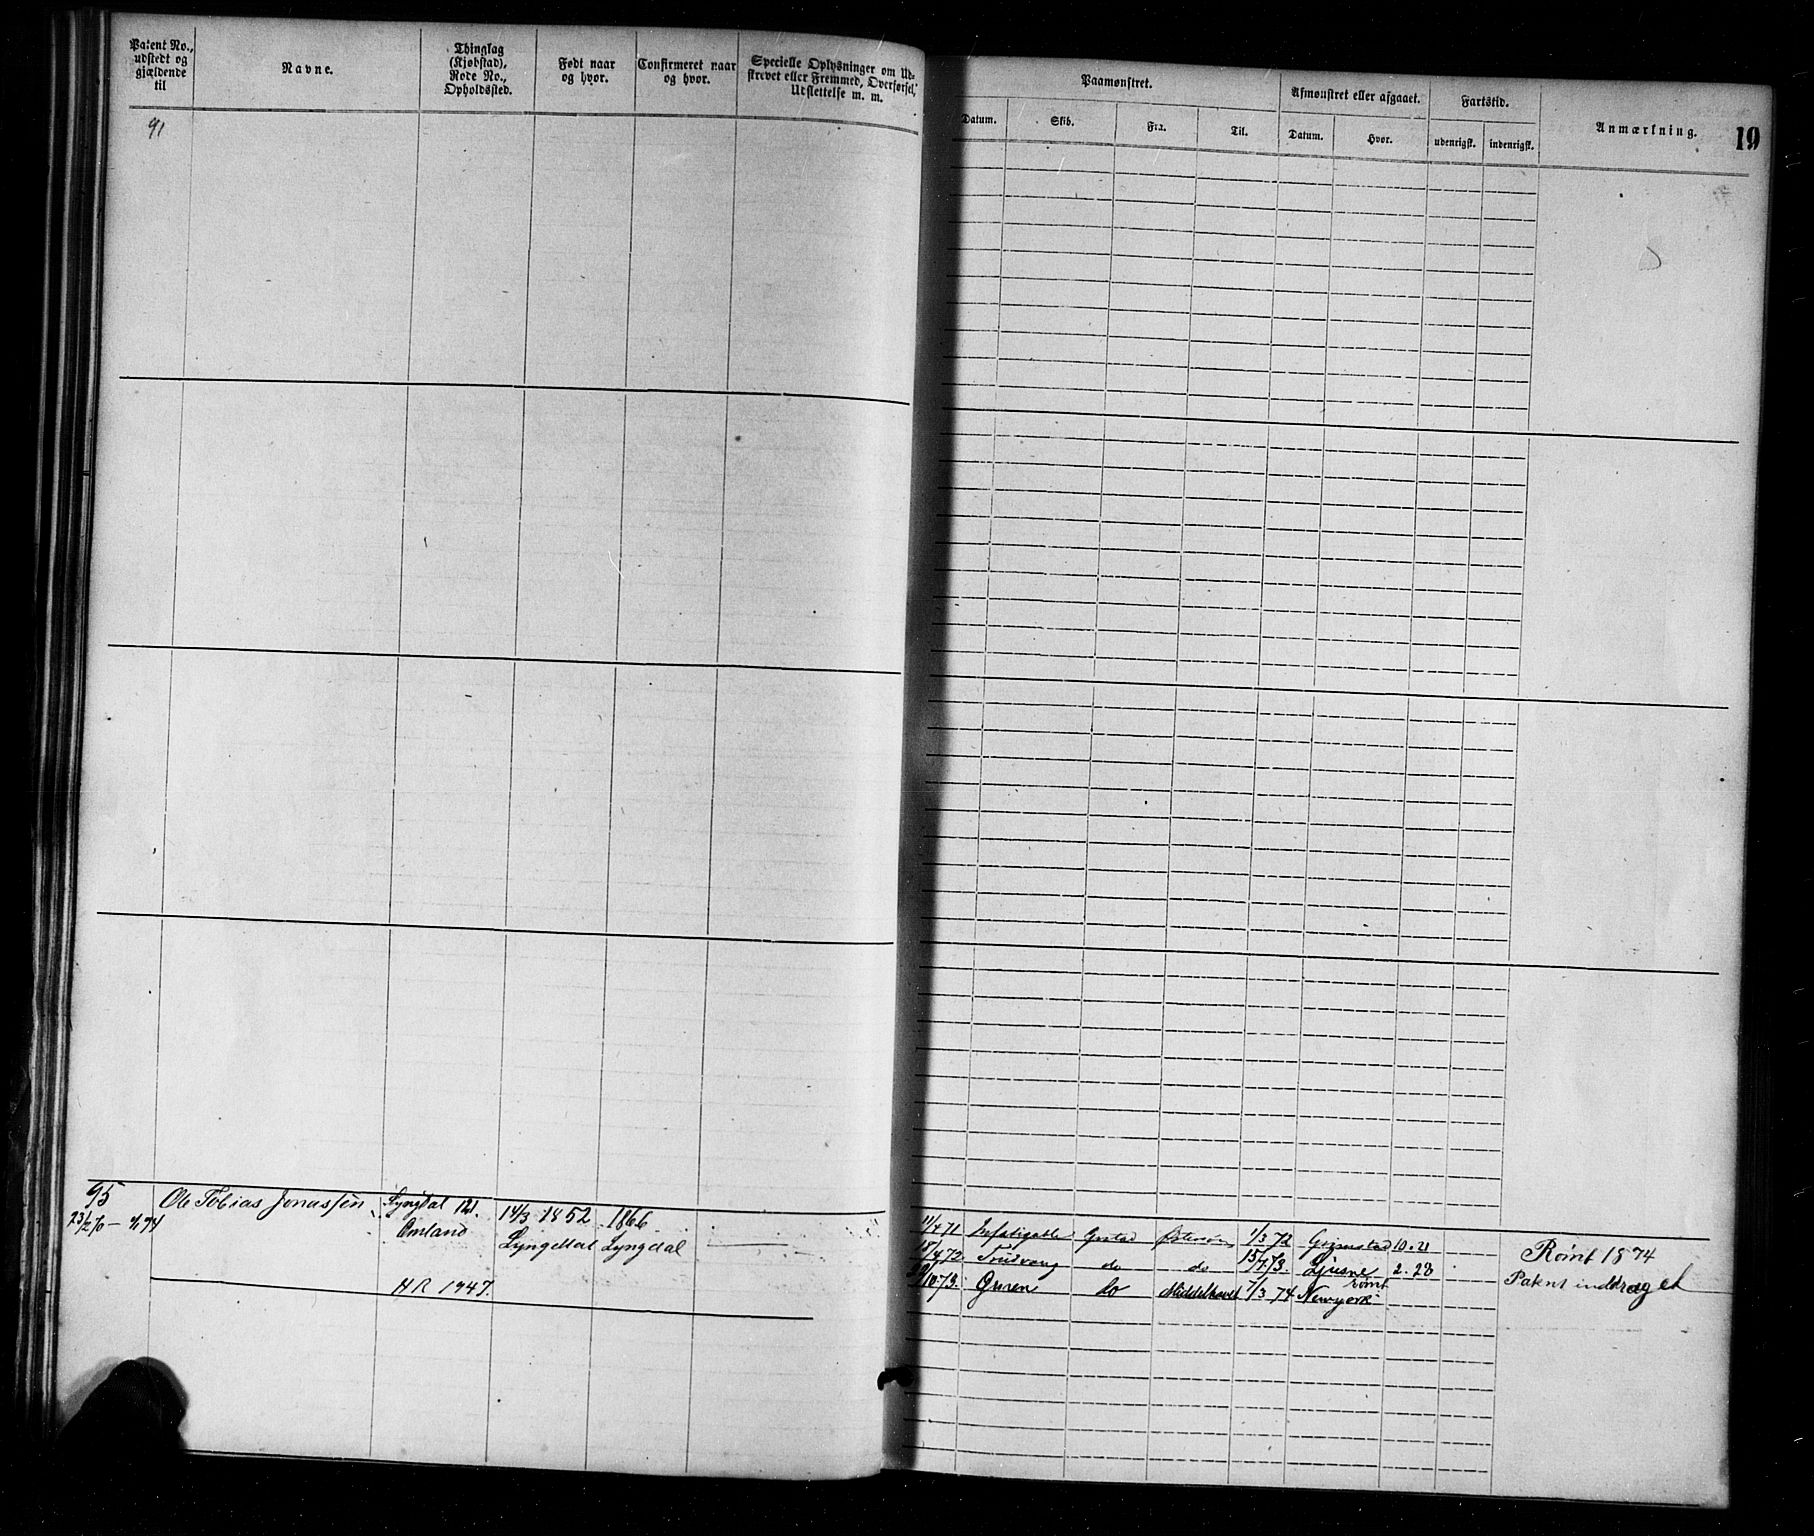 Patent No., udstedt og gjældende til
Navne.
Thinglag (Kjøbstad), Rode No., Opholdssted.
Født naar og hvor.
Confirmeret naar og hvor.
Specielle Oplysninger om Udskrevet eller Fremmed, Overførsel, Udslettelse m. m.
Paamønstret.
Datum.
Skib.
Fra.
Til.
Afmønstret eller afgaaet.
Datum.
Hvor.
Fartstid.
udenrigsk.
indenrigsk.
Anmærkning.
19
91
95
Ole Tobias Jonassen
Lyngdal 121.
14/3 1852
1866
Omland
Lyngdal
Lyngdal
HR 1947.
11/4 71
1/3 72
Grimstad
10. 21
18/4 72
do
do
15/7 73.
Ljusne
2. 28
/10 73.
do
Middelhavet
1/3 74
rømt
Newyork
Rømt 1874
Patent inddraget